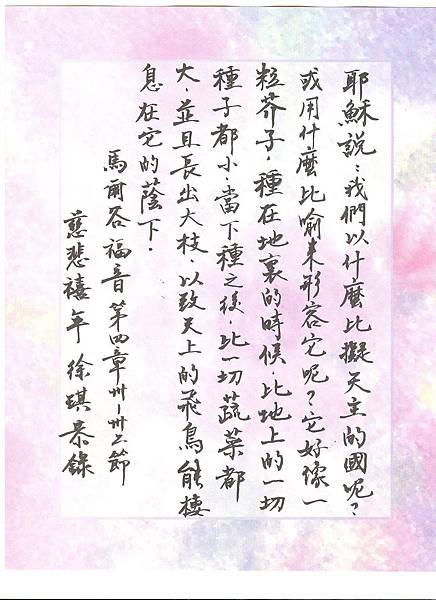 耶穌說：我們以什麼比擬天主的國呢？
或用什麼比喻來形容它呢？它好像一
粒芥子，種在地裏的時候，比地上的一切
種子都小，當下種之後，比一切蔬菜都
大，並且長出大枝，以致天上的飛鳥能棲
息在它的蔭下．
馬爾谷福音第四章卅－卅二節
慈悲禧年 徐琪恭錄